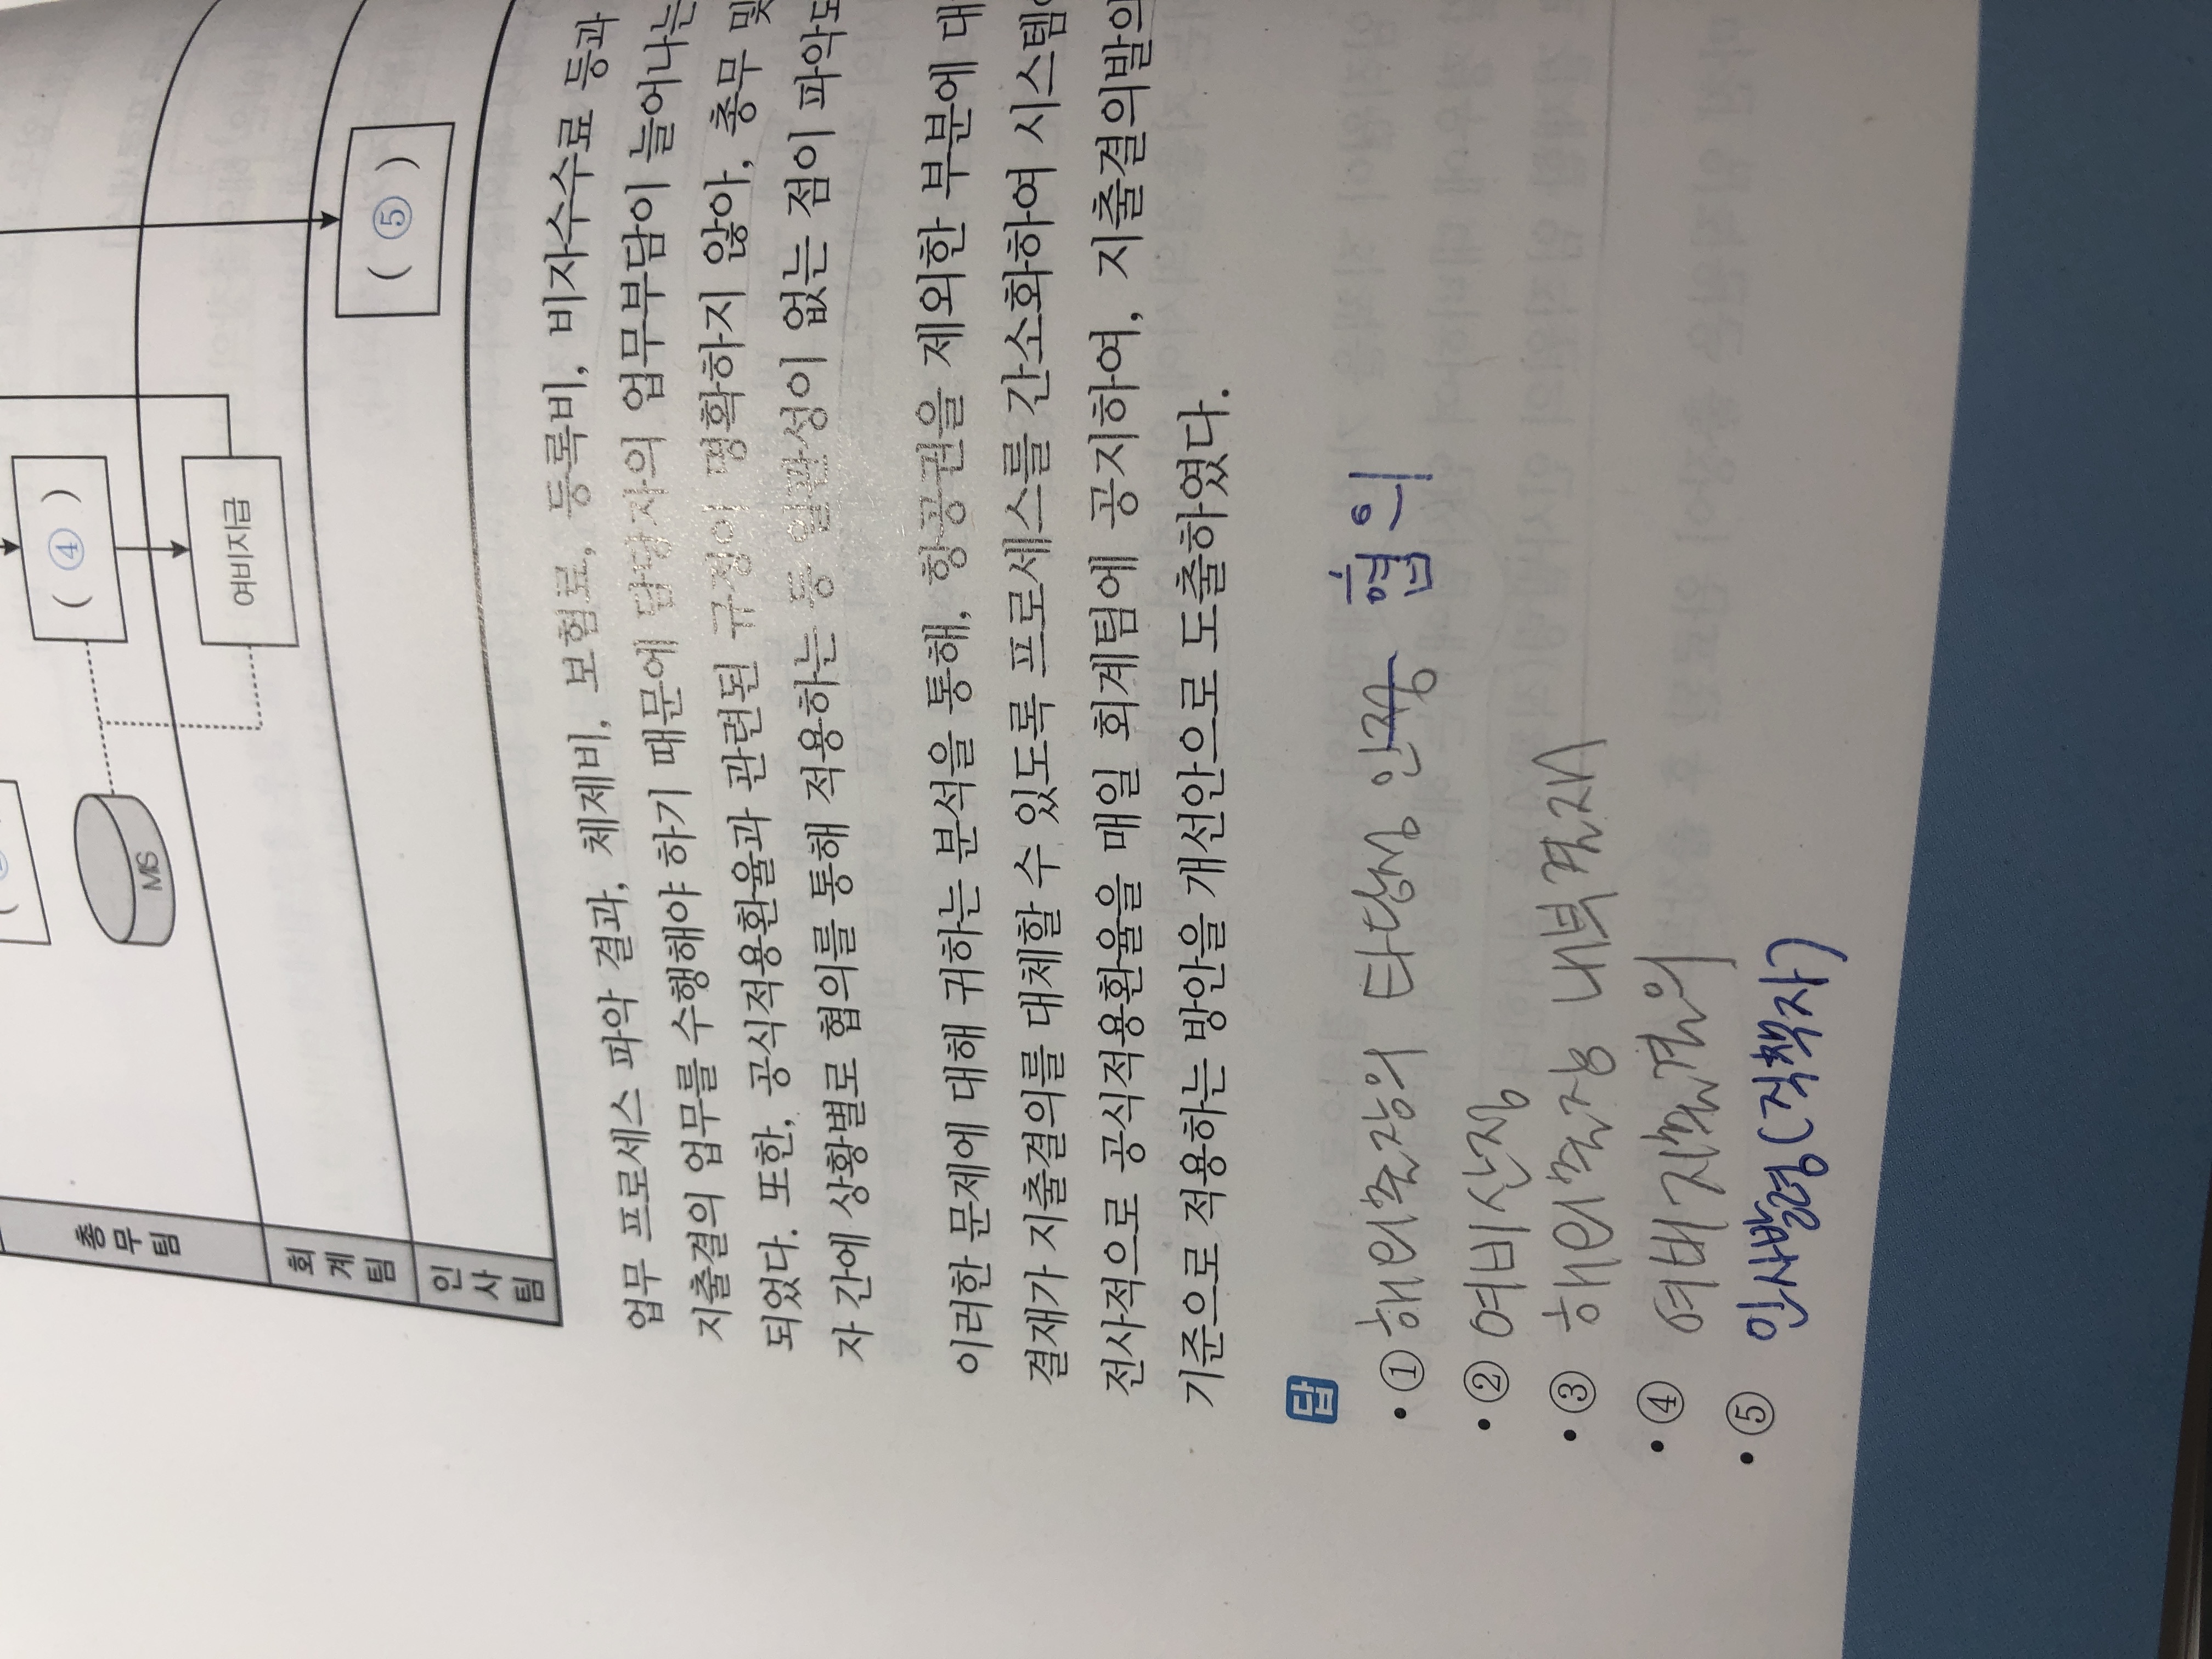 ( ④ )
( ⑤ )
MS
여비지급
총무팀
회계팀
인사팀
업무 프로세스 파악 결과, 체제비, 보험료, 등록비, 비자수수료 등과
지출결의 업무를 수행해야 하기 때문에 담당자의 업무부담이 늘어나는
되었다. 또한, 공식적용환율과 관련된 규정이 명확하지 않아, 총무 및
자 간에 상황별로 협의를 통해 적용하는 등 일관성이 없는 점이 파악되
이러한 문제에 대해 귀하는 분석을 통해, 항공권을 제외한 부분에 대
결재가 지출결의를 대체할 수 있도록 프로세스를 간소화하여 시스템
전사적으로 공식적용환율을 매일 회계팀에 공지하여, 지출결의발의
기준으로 적용하는 방안을 개선안으로 도출하였다.
답
• ① 해외출장의 타당성 협의
• ② 여비산정
• ③ 해외출장 내부결재
• ④ 여비지출결의
• ⑤ 인사발령(직책자)